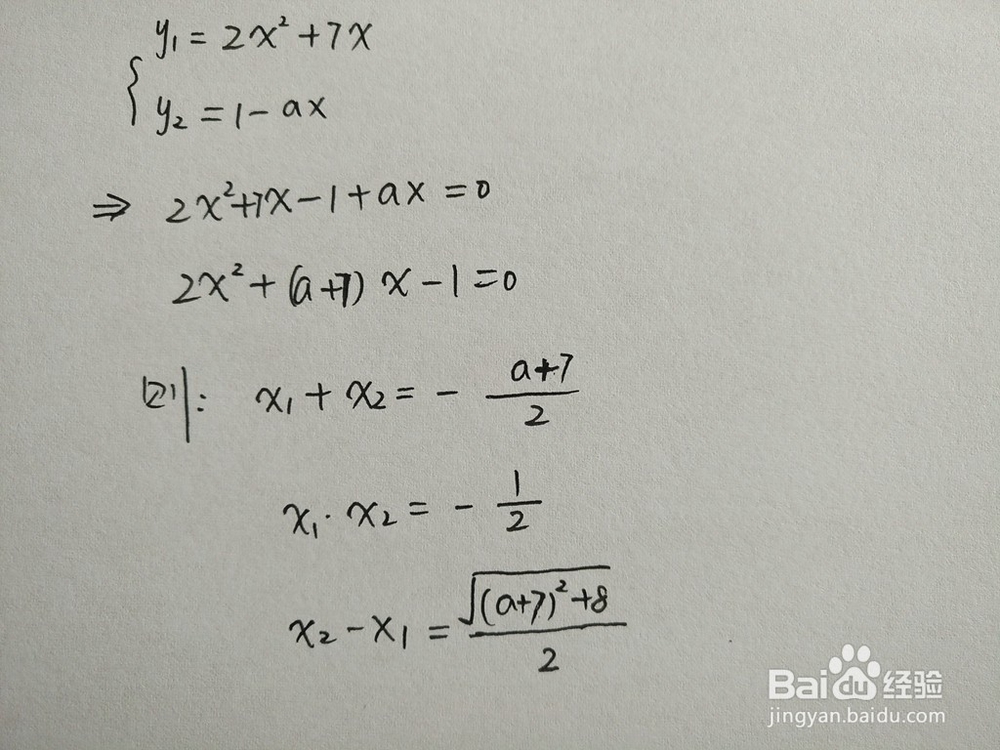 y₁ = 2x² + 7x
y₂ = 1 - ax
⇒ 2x² + 7x - 1 + ax = 0
2x² + (a+7) x - 1 = 0
则: x₁ + x₂ = - (a+7)/2
x₁ · x₂ = - 1/2
x₂ - x₁ = √((a+7)² + 8)/2
Baidu 经验
jingyan.baidu.com